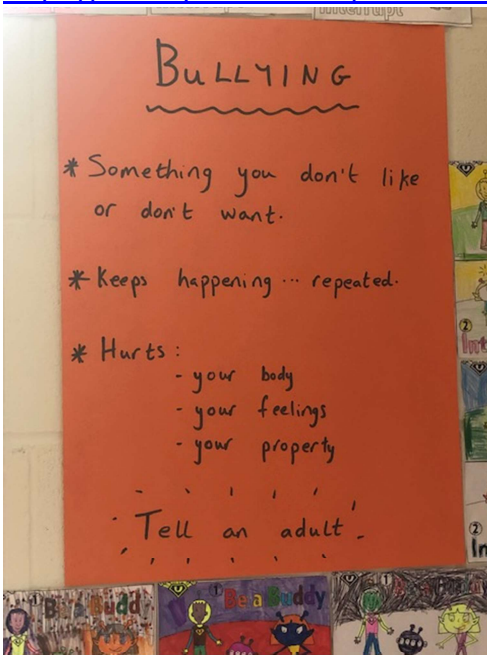 Interrupt
BULLYING
* Something you don't like
or don't want.
* Keeps happening... repeated.
* Hurts:
- your body
- your feelings
- your property
Tell an adult.
② 
② 
In
① Be a Buddy
① Be a Buddy
①